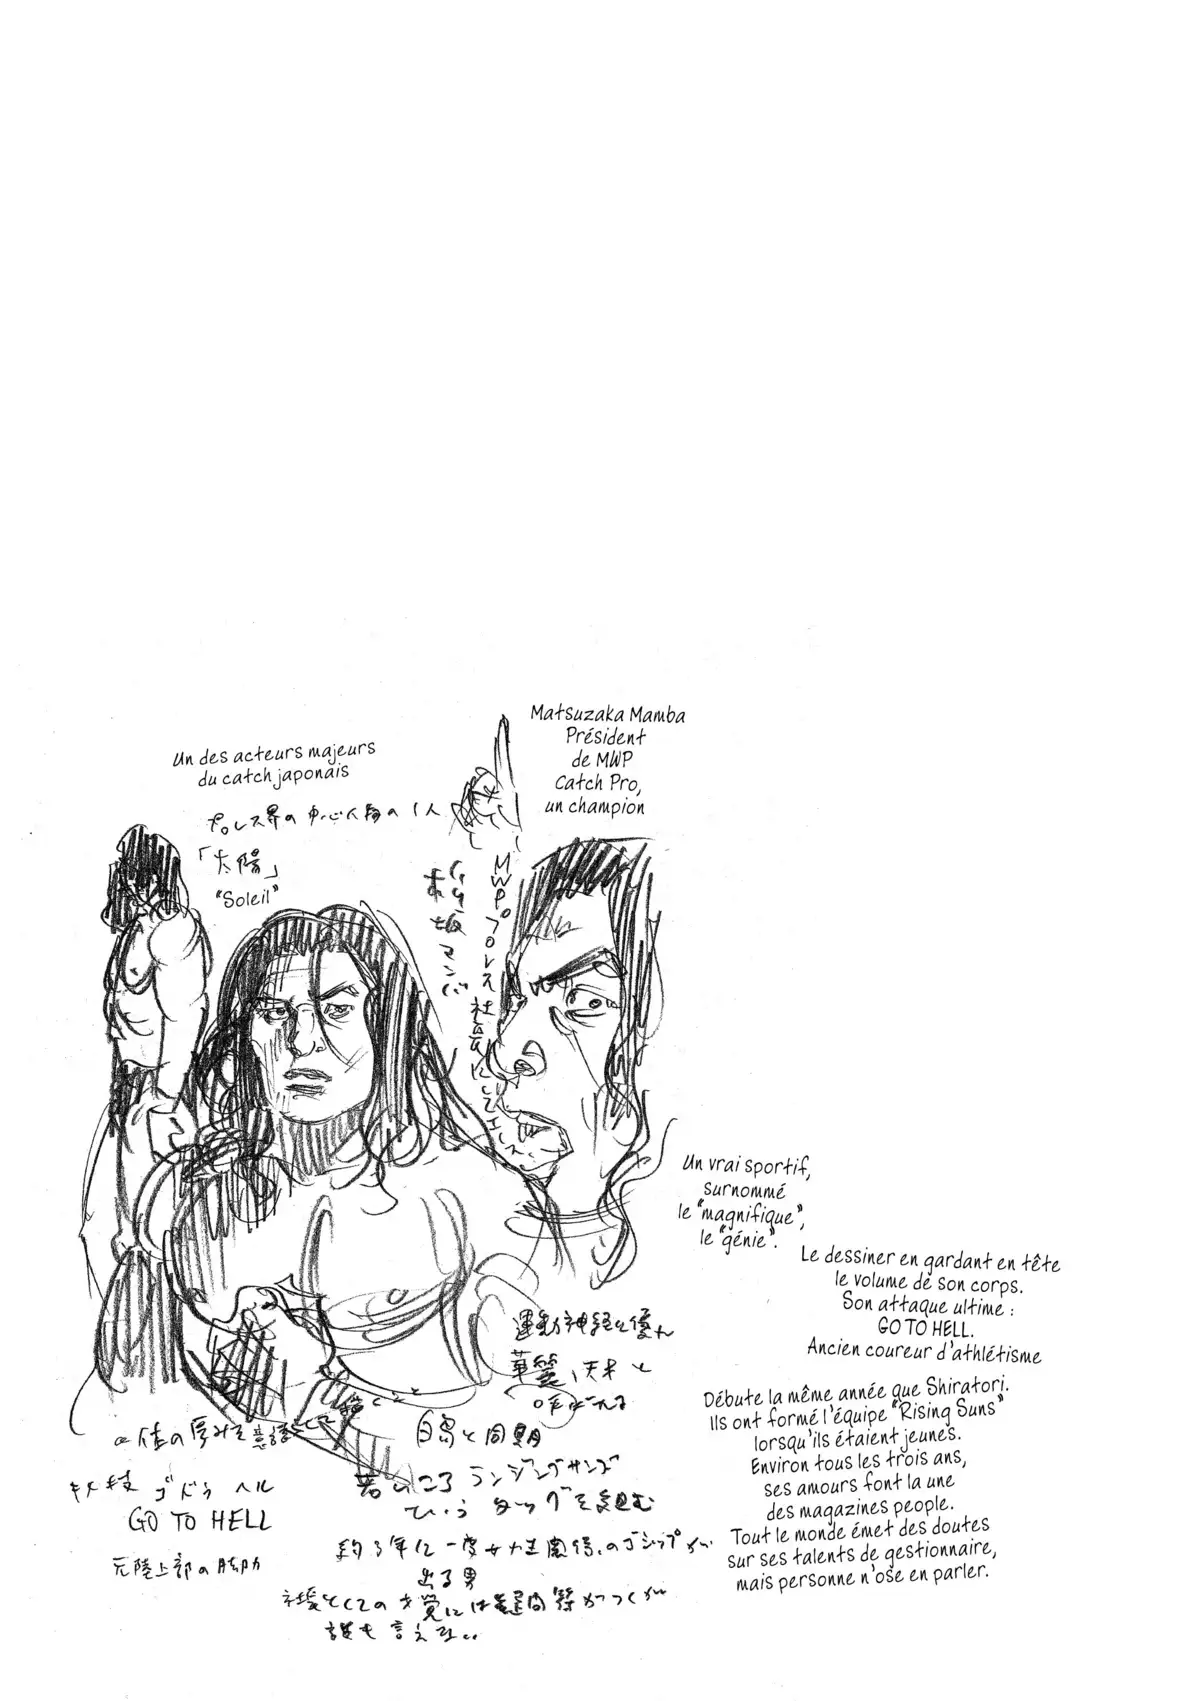 Matsuzaka Mamba
Président
de MWP
Catch Pro,
un champion
Un des acteurs majeurs
du catch japonais
プロレス界の中心人物の1人
「太陽」
"Soleil"
松坂マンバ
MWPプロレス社長にしてエース
Un vrai sportif,
surnommé
le "magnifique",
le "génie".
Le dessiner en gardant en tête
le volume de son corps.
Son attaque ultime :
GO TO HELL.
Ancien coureur d'athlétisme
運動神経に優れ
華麗、天才と
呼ばれる
体の厚みを意識して描くこと
ゴートゥヘル
GO TO HELL
元陸上部の脚力
白鳥と同期
若いころ ランジングサンズ
というタッグを組む
約3年に一度女性関係のゴシップが
出る男
社長としての才覚には疑問符がつくが
誰も言えない..
Débute la même année que Shiratori.
Ils ont formé l'équipe "Rising Suns"
lorsqu'ils étaient jeunes.
Environ tous les trois ans,
ses amours font la une
des magazines people.
Tout le monde émet des doutes
sur ses talents de gestionnaire,
mais personne n'ose en parler.